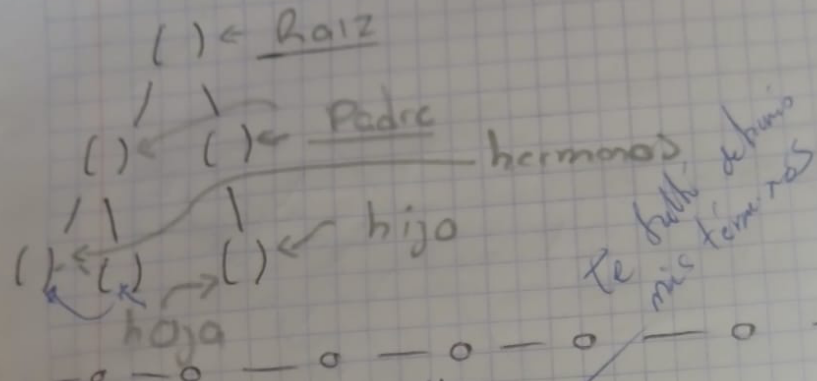 ( ) ← Raiz
/ \
( ) ( ) ← Padre
hermanos
/ \ \
( ) ( ) ( ) ← hijo
hoja
Te faltó definir
más términos